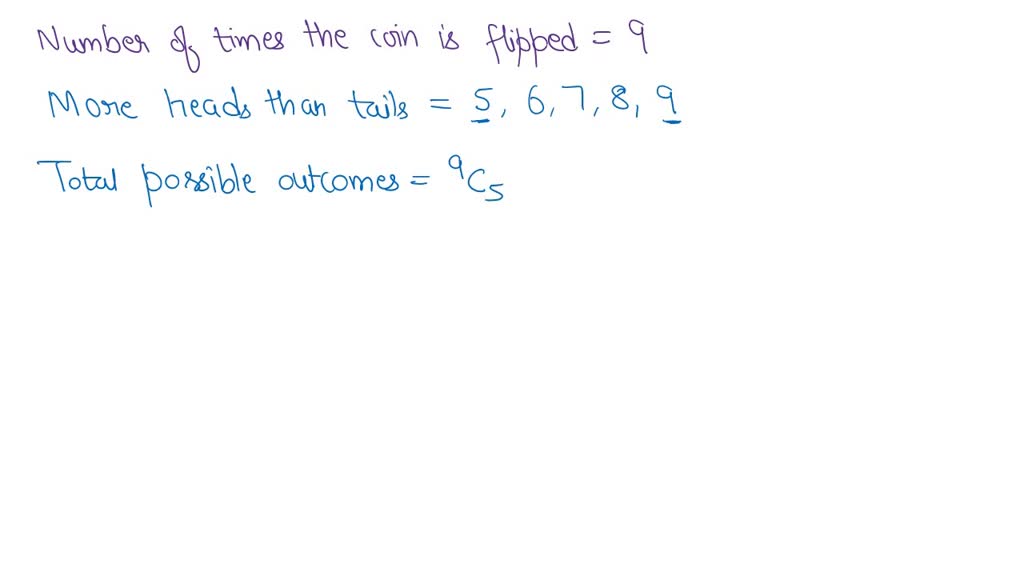 Number of times the coin is flipped = 9
More heads than tails = 5, 6, 7, 8, 9
Total possible outcomes = ⁹C₅